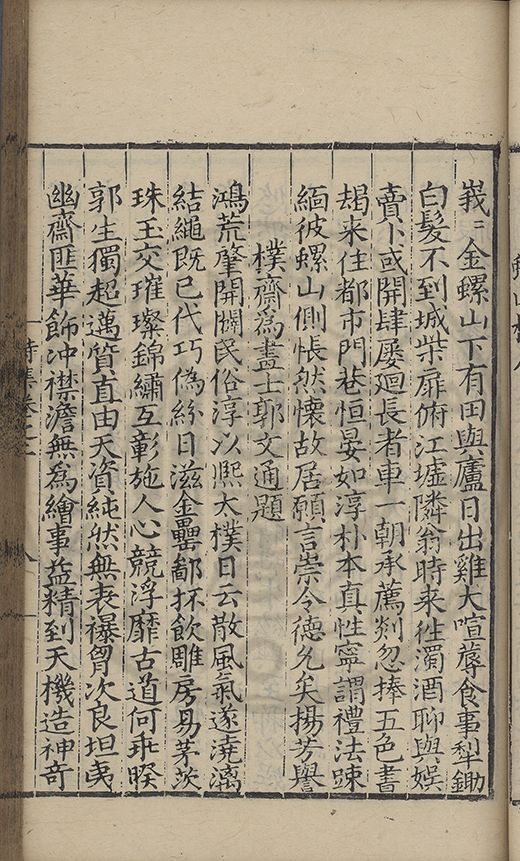 峩〻金螺山下有田與廬日出雞犬喧蓐食事犁鋤
白髮不到城柴扉俯江墟隣翁時来往濁酒聊與娯
賣卜或開肆屡廻長者車一朝承薦剡忽捧五色書
朅来住都市門巷恒晏如淳朴本真性寧謂禮法踈
緬彼螺山側悵然懷故居願言崇令德允矣揚芳譽
樸齋為畫士郭文通題
鴻荒肇開闢民俗淳以熙太樸日云散風氣遂澆漓
結繩既已代巧偽紛日滋金罍鄙抔飲雕房易茅茨
珠玉交璀璨錦繡互彰施人心競浮靡古道何乖睽
郭生獨超邁質直由天資純然無表襮胷次良坦夷
幽齋匪華飾冲襟澹無為繪事益精到天機造神奇
詩集卷之
八